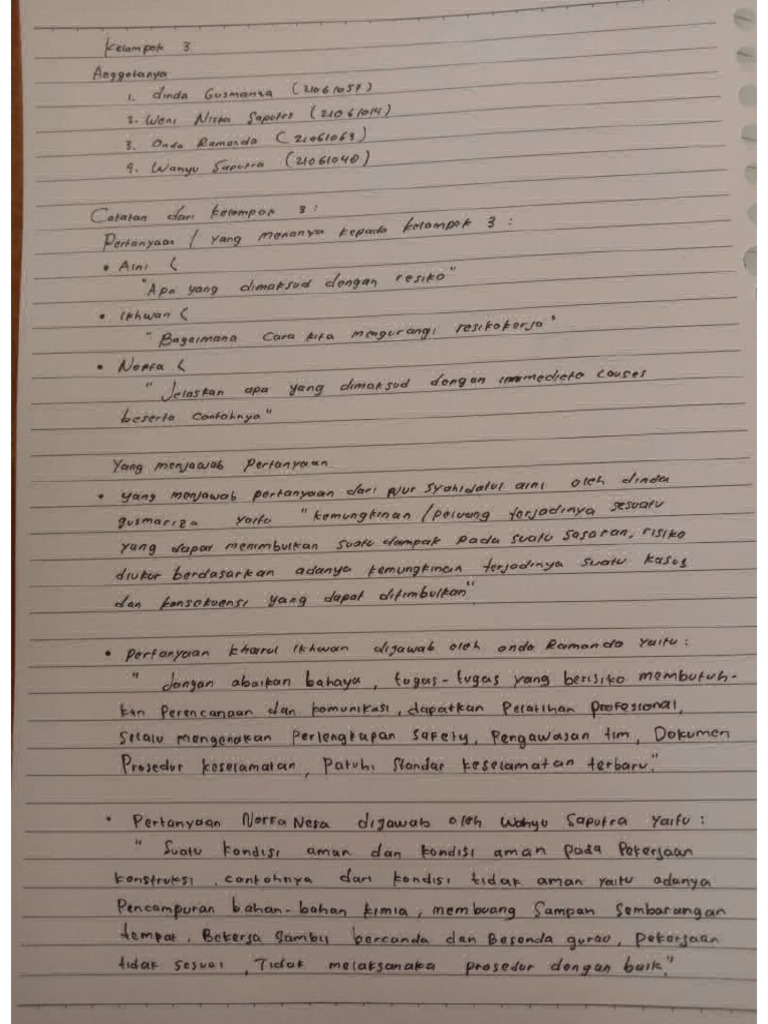 Kelompok 3
Anggotanya
1. dinda Gusmariza (21061057)
2. Weni Niska Saputri (21061014)
3. Ondo Ramanda (21061063)
4. Wahyu Saputra (21061040)
Catatan dari kelompok 3 :
Pertanyaan / yang menanya kepada kelompok 3 :
• Aini (
"Apa yang dimaksud dengan resiko"
• Ikhwan (
"Bagaimana Cara kita mengurangi resikokerja"
• Norra (
" Jelaskan apa yang dimaksud dengan immediete causes
beserta contohnya"
Yang menjawab Pertanyaan
• yang menjawab pertanyaan dari Nur Syahidatul aini oleh dinda
gusmariza yaitu "kemungkinan / peluang terjadinya sesuatu
yang dapat menimbulkan suatu dampak pada suatu sasaran, risiko
diukur berdasarkan adanya kemungkinan terjadinya suatu kasus
dan konsekuensi yang dapat ditimbulkan"
• Pertanyaan khairul Ikhwan dijawab oleh ondo Ramando yaitu :
" jangan abaikan bahaya, tugas-tugas yang berisiko membutuh-
kan Perencanaan dan komunikasi, dapatkan Pelatihan profesional,
Selalu mengenakan Perlengkapan Safety, Pengawasan tim, Dokumen
Prosedur keselamatan, Patuhi Standar keselamatan terbaru."
• Pertanyaan Norra Nesa dijawab oleh Wahyu Saputra yaitu :
" Suatu kondisi aman dan kondisi aman pada Pekerjaan
konstruksi, contohnya dari kondisi tidak aman yaitu adanya
Pencampuran bahan-bahan kimia, membuang Sampah Sembarangan
tempat, Bekerja Sambil bercanda dan Besenda gurau, Pekerjaan
tidak sesuai, Tidak melaksanaka prosedur dengan baik."